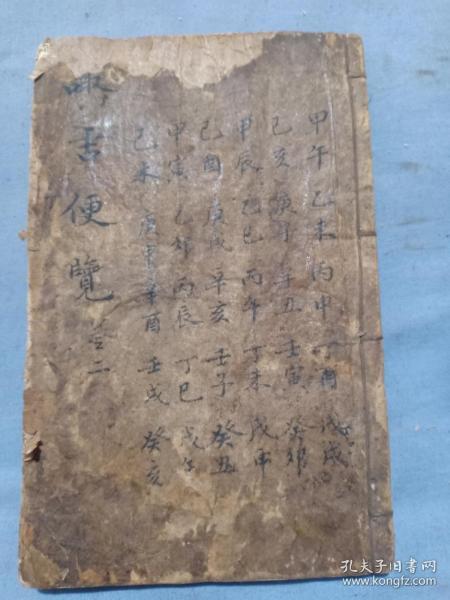 甲午乙未丙申丁酉戊戌
己亥庚子辛丑壬寅癸卯
甲辰乙巳丙午丁未戊申
己酉庚戌辛亥壬子癸丑
甲寅乙卯丙辰丁巳戊午
己未庚申辛酉壬戌癸亥
舌便覽卷二
孔夫子旧书网
www.kongfz.com